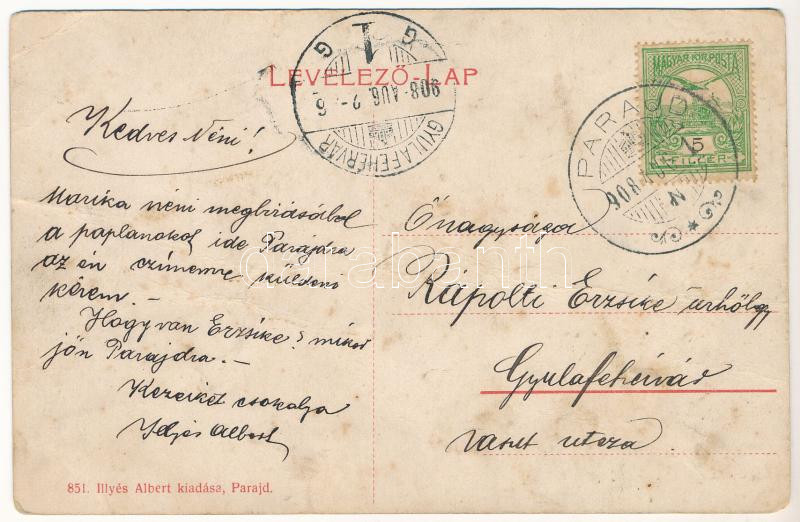 LEVELEZŐ-LAP
G 1 G
908 AUG. 2-6
GYULAFEHÉRVÁR
MAGYAR KIR. POSTA
5
FILLÉR
PARAJD
908
Kedves Néni!
Marika néni megbizásából
a paplanokat ide Parajdra
az én czímemre küldeni
kérem. –
Hogy van Erzsike? mikor
jön Parajdra. –
Kezeiket csokolja
Illyés Albert
Őnagysága
Rápolti Erzsike úrhölgy
Gyulafehérvár
utcza.
darabanth
851. Illyés Albert kiadása, Parajd.